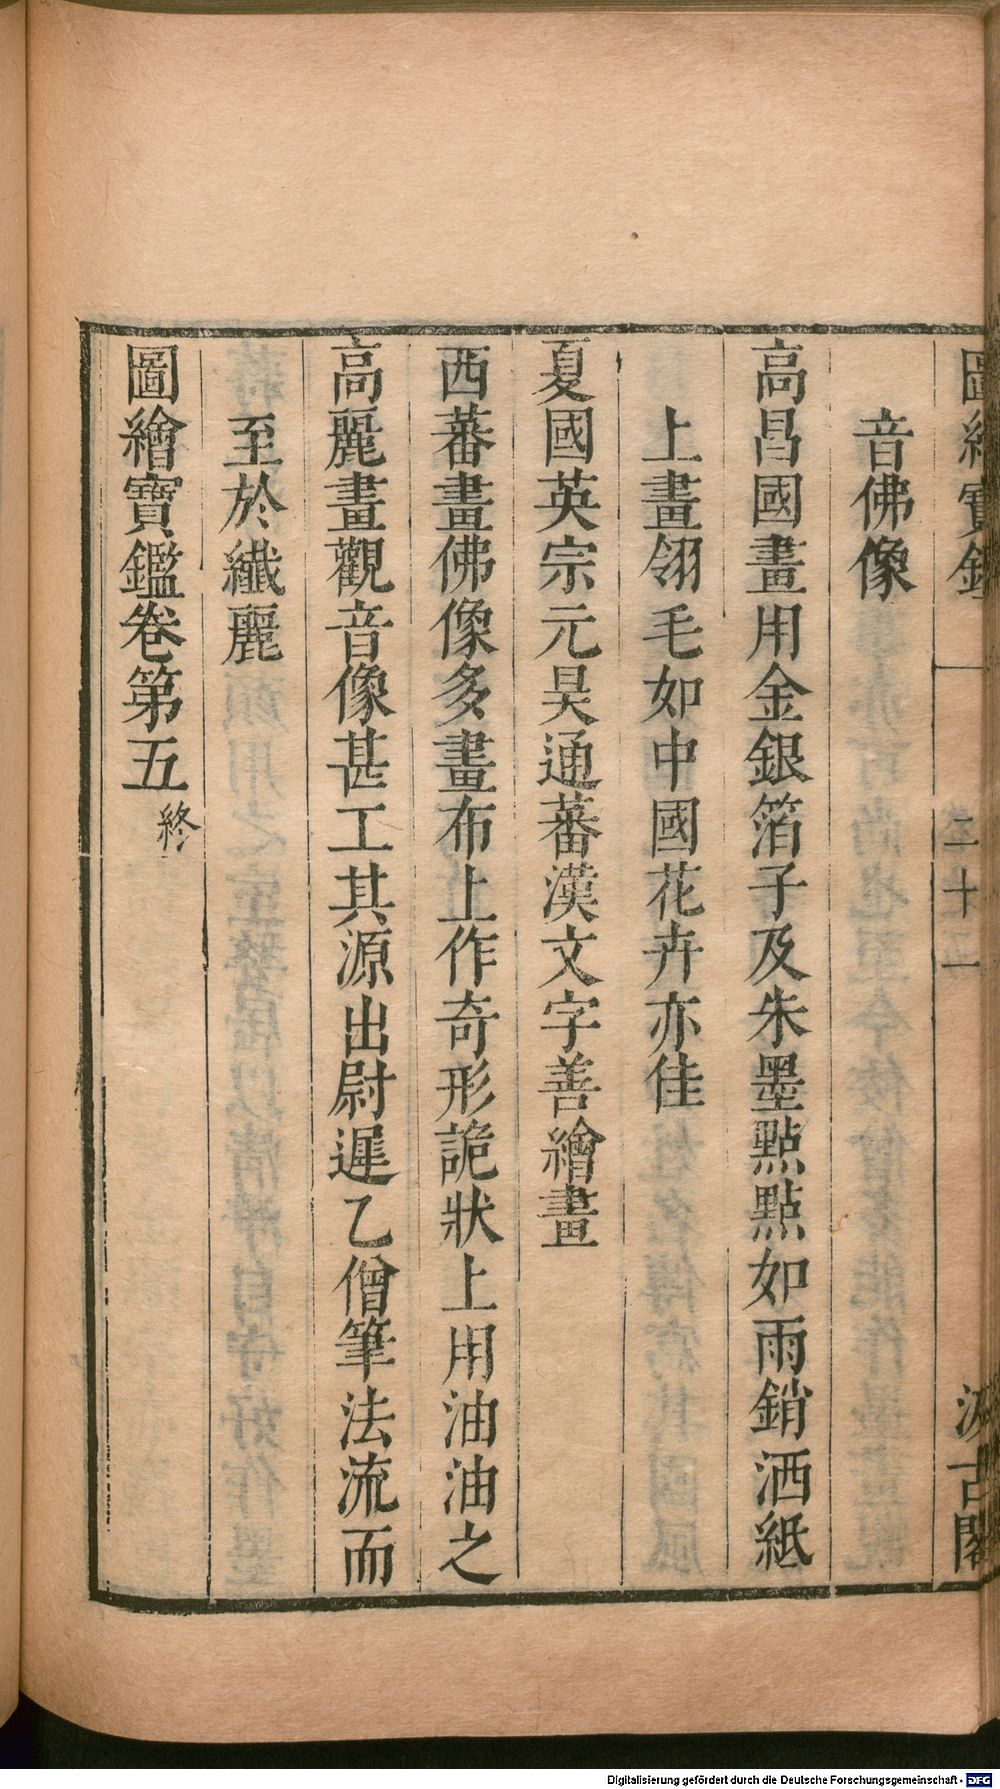 圖繪寶鑑
二十二
汲古閣
音佛像
高昌國畫用金銀箔子及朱墨點點如雨銷洒紙
上畫翎毛如中國花卉亦佳
夏國英宗元昊通蕃漢文字善繪畫
西蕃畫佛像多畫布上作奇形詭狀上用油油之
高麗畫觀音像甚工其源出尉遲乙僧筆法流而
至於纖麗
圖繪寶鑑卷第五終
Digitalisierung gefördert durch die Deutsche Forschungsgemeinschaft - DFG